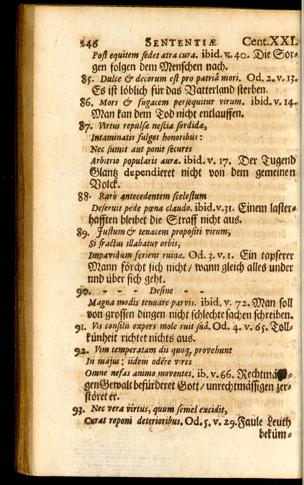 246 SENTENTIÆ Cent.XXI.
Post equitem sedet atra cura. ibid. v. 40. Die Sor-
gen folgen dem Menschen nach.
85. Dulce & decorum est pro patriâ mori. Od. 2. v. 13.
Es ist löblich für das Vatterland sterben.
86. Mors & fugacem persequitur virum. ibid. v. 14.
Man kan dem Tod nicht entlauffen.
87. Virtus repulsæ nescia sordidæ,
Intaminatis fulget honoribus:
Nec sumit aut ponit secures
Arbitrio popularis auræ. ibid. v. 17. Der Tugend
Glantz dependieret nicht von dem gemeinen
Volck.
88. Rarò antecedentem scelestum
Deseruit pede pœna claudo. ibid. v. 31. Einem laster-
hafften bleibet die Straff nicht aus.
89. Justum & tenacem propositi virum,
Si fractus illabatur orbis,
Impavidum ferient ruinæ. Od. 3. v. 1. Ein tapferer
Mann förcht sich nicht / wann gleich alles under
und über sich geht.
90. - - - - Desine - -
Magna modis tenuare parvis. ibid. v. 72. Man soll
von grossen dingen nicht schlechte sachen schreiben.
91. Vis consilî expers mole ruit suâ. Od. 4. v. 65. Toll-
kühnheit richtet nichts aus.
92. Vim temperatam dii quoq, provehunt
In majus: iidem odêre vires
Omne nefas animo moventes. ib. v. 66. Rechtmäs-
gen Gewalt befürderet Gott / unrechtmässigen zer-
störet er.
93. Nec vera virtus, quum semel excidit,
Curat reponi deterioribus. Od. 5. v. 29. Faule Leuth
bekům-